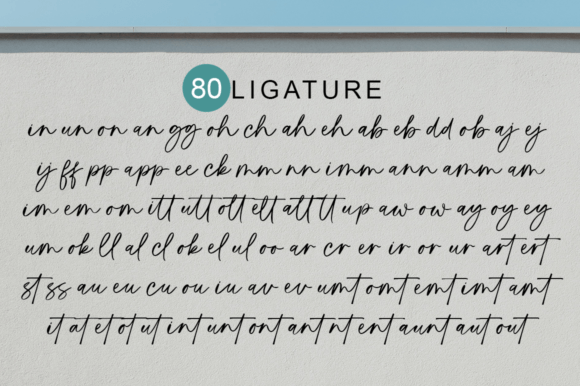 80 LIGATURE
in un on an gg oh ch ah eh ab eb dd ob aj ej
ij ff pp app ee ck mm nn imm ann amm am
im em om itt utt ott ett att tt up aw ow ay oy ey
um ok ll al cl ok el ul oo ar cr er ir or ur art ert
st ss au eu cu ou iu av ev umt omt emt imt amt
it at et ot ut int unt ont ant nt ent aunt aut out